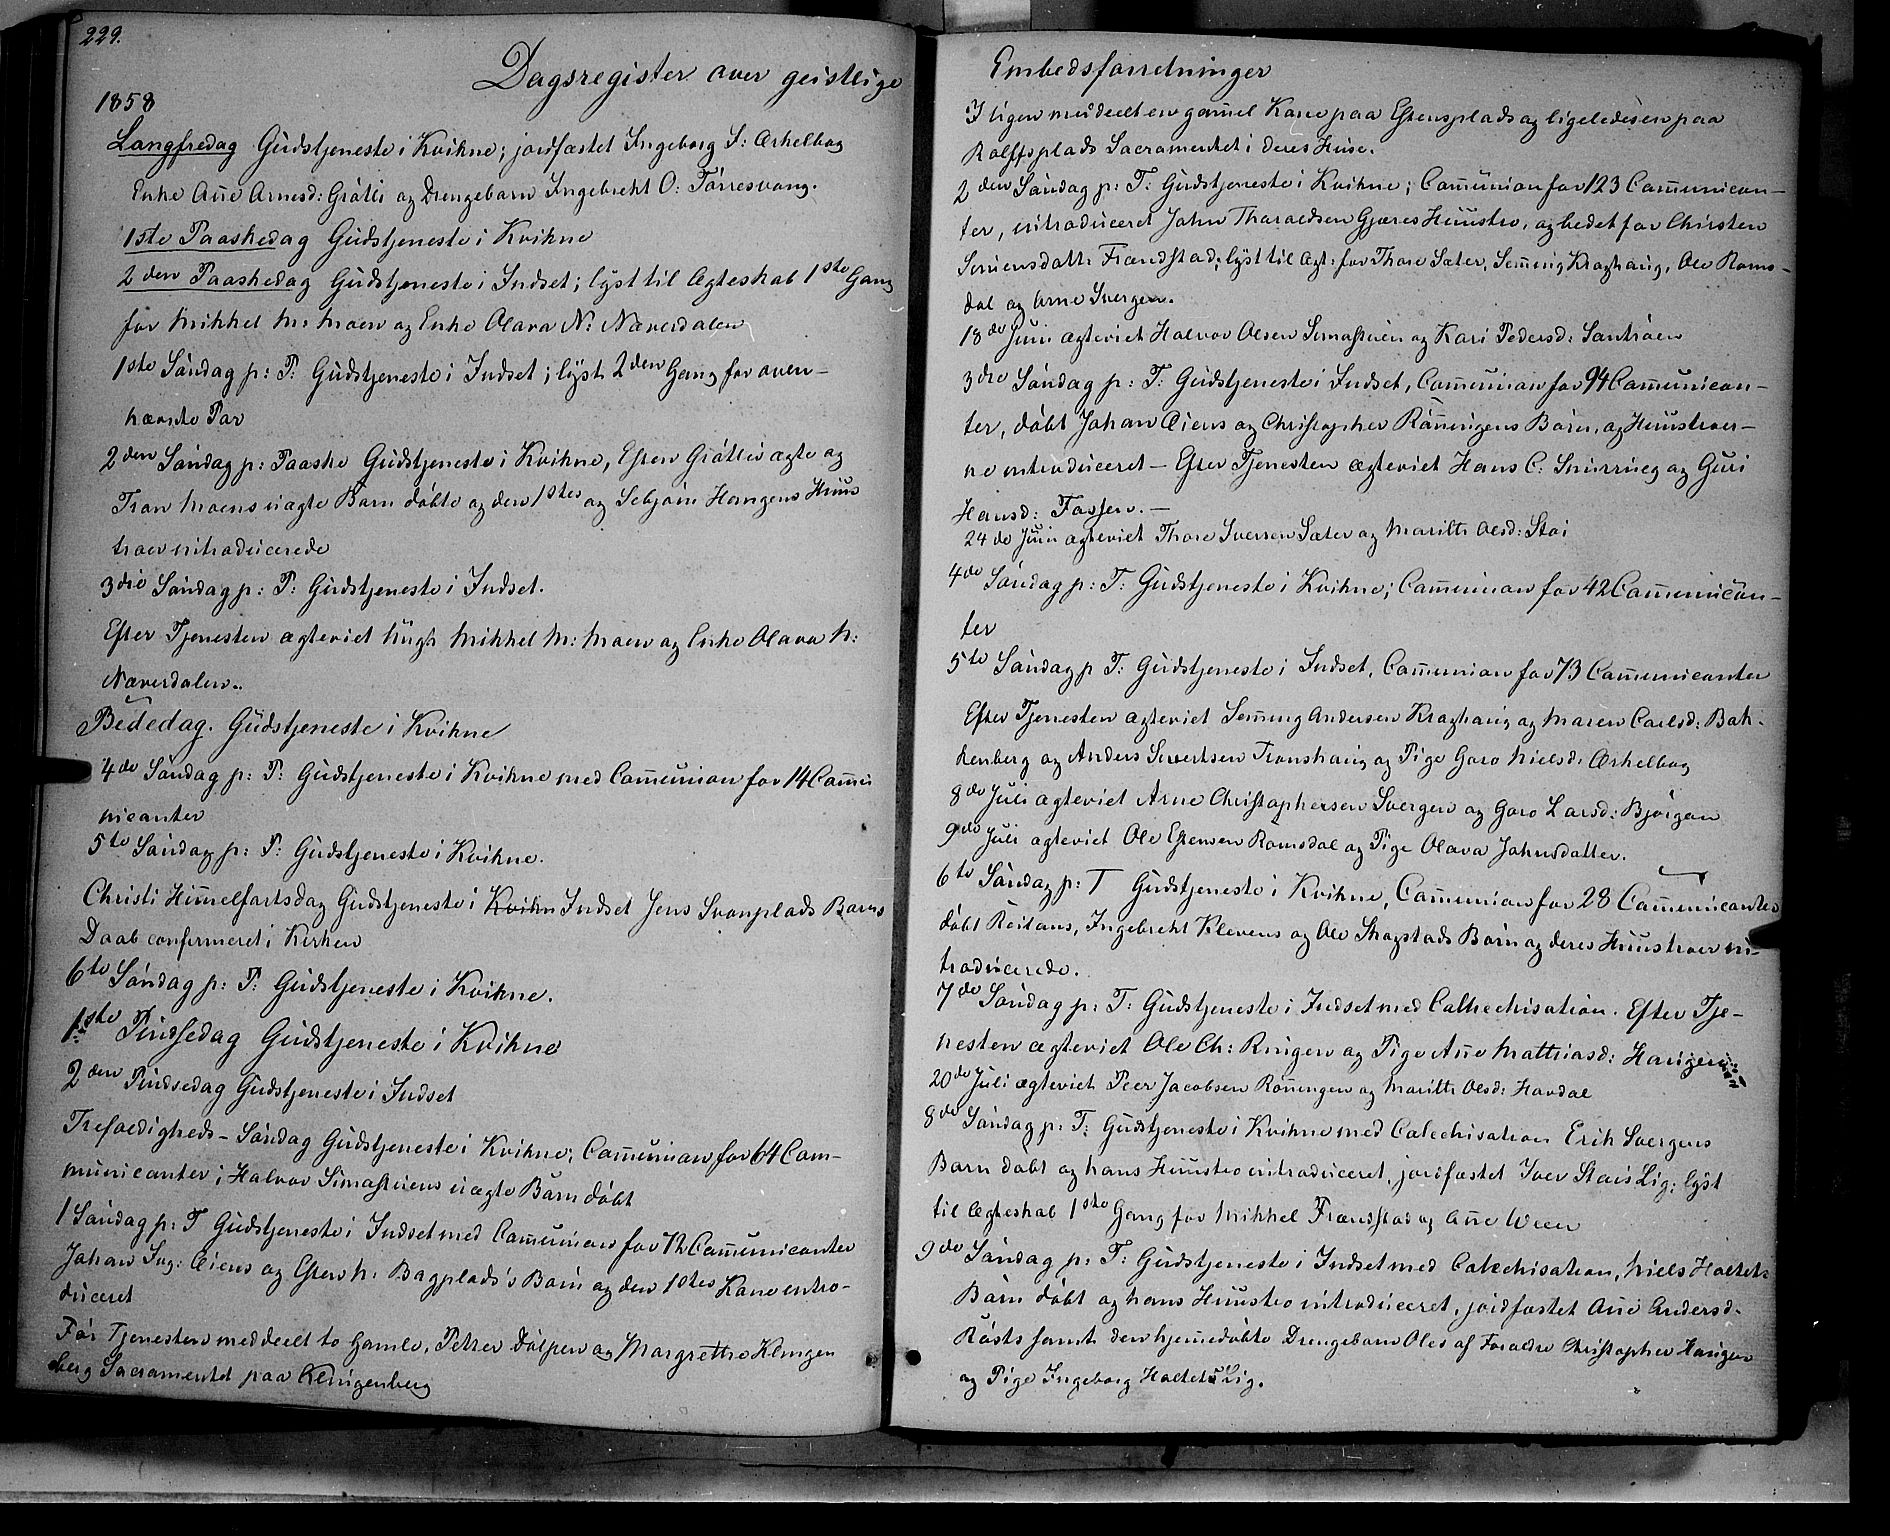 229.
Dagsregister over geistlige
1858
Langfredag Gudstjeneste i Kvikne; jordfæstet Ingeborg S: Ærhelbog
Enke Ane Arnesd: Grøtli og Drengebarn Ingebrekt O: Torresvang.
1ste Paaskedag Gudstjeneste i Kvikne
2den Paaskedag Gudstjeneste i Indset; lyst til Ægteskab 1ste Gang
for Mikkel M: Moen og Enke Olava N: Næverdalen
1ste Søndag p: P: Gudstjeneste i Indset; lyst 2den Gang for oven-
nævnte Par
2den Søndag p: Paaske Gudstjeneste i Kvikne, Esten Grøtlis ægte og
Tron Moens uægte Barn døbte og den 1stes og Sebjørn Haugens Huus
troer introducerede
3die Søndag p: P: Gudstjeneste i Indset.
Efter Tjenesten ægteviet Ungk: Mikkel M: Moen og Enke Olava N:
Næverdalen.
Bededag. Gudstjeneste i Kvikne
4de Søndag p: P: Gudstjeneste i Kvikne med Communion for 14 Commu
nicanter
5te Søndag p: P: Gudstjeneste i Kvikne.
Christi Himmelfartsdag Gudstjeneste i Kvikn Indset Jens Svanplads Barns
Daab confirmeret i Kirken
6te Søndag p: P: Gudstjeneste i Kvikne.
1ste Pindsedag Gudstjeneste i Kvikne
2den Pindsedag Gudstjeneste i Indset
Trefoldigheds-Søndag Gudstjeneste i Kvikne; Communion for 64 Com-
municanter; Halvor Simastuens uægte Barn døbt
1 Søndag p: T Gudstjeneste i Indset med Communion for 72 Communicanter
Johan Ing: Eiens og Esten h. Bagplads's Børn og den 1stes Kone intro-
duceret
Før Tjenesten meddeelt to Gamle, Petter Dølpen og Margrethe Klingen
berg Sacramentet paa Klingenberg
Embedsforretninger
I Ugen meddeelt en gammel Kone paa Estensplads og ligeledes en paa
Rolffsplads Sacramentet i deres Huse.
2den Søndag p: T: Gudstjeneste i Kvikne; Communion for 123 Communican-
ter, introduceret John Tharaldsen Gjæres Huustro, og bedet for Chirsten
Simensdatt: Frandstad; lyst til Ægt: for Thore Sæter, Semmig Kraghaug, Ole Roms-
dal og Arne Svergen.
18de Juni ægteviet Halvor Olsen Simastuen og Kari Pedersd: Santrøen
3die Søndag p: T: Gudstjeneste i Indset, Communion for 94 Communican-
ter, døbt Johan Eiens og Christopher Rønningens Børn, og Huustroer-
ne introduceret - Efter Tjenesten ægteviet Hans C: Snurrueg og Guri
Hansd: Fossen. -
24de Juni ægteviet Thore Iversen Sæter og Marith Olsd: Stai
4de Søndag p: T: Gudstjeneste i Kvikne; Communion for 42 Communican-
ter
5te Søndag p T: Gudstjeneste i Indset, Communion for 73 Communicanter
Efter Tjenesten ægteviet Semming Andersen Kraghaug og Maren Carlsd: Bak-
kenberg og Anders Sivertsen Tronshaug og Pige Goro Nielsd: Ærhelbog
8de Juli ægteviet Arne Christophersen Svergen og Goro Larsd: Bjørgan
9de Juli ægteviet Ole Estensen Romsdal og Pige Olava Johnsdatter.
6te Søndag p: T Gudstjeneste i Kvikne, Communion for 28 Communicanter
døbt Reitans, Ingebrekt Klevens og Ole Skogstads Børn og deres Huustroer in-
troducerede.
7de Søndag p: T: Gudstjeneste i Indset med Cathechisation. Efter Tje-
nesten ægteviet Ole Ch: Ringen og Pige Ane Mathiasd: Haugen
20de Juli ægteviet Peer Jacobsen Rønningen og Marith Olsd: Hovdal
8de Søndag p: T: Gudstjeneste i Kvikne med Catechisation Erik Svergens
Barn døbt og hans Huustro introduceret, jordfæstet Iver Stais Lig; lyst
til Ægteskab 1ste Gang for Mikkel Frandstad og Ane Ween
9de Søndag p: T: Gudstjeneste i Indset med Catechisation, Niels Holtets
Barn døbt og hans Huustro introduceret, jordfæstet Ane Andersd:
Røsts samt den hjemmedøbte Drengebarn Oles af Forældre Christopher Haugen
og Pige Ingeborg Holtets Lig.